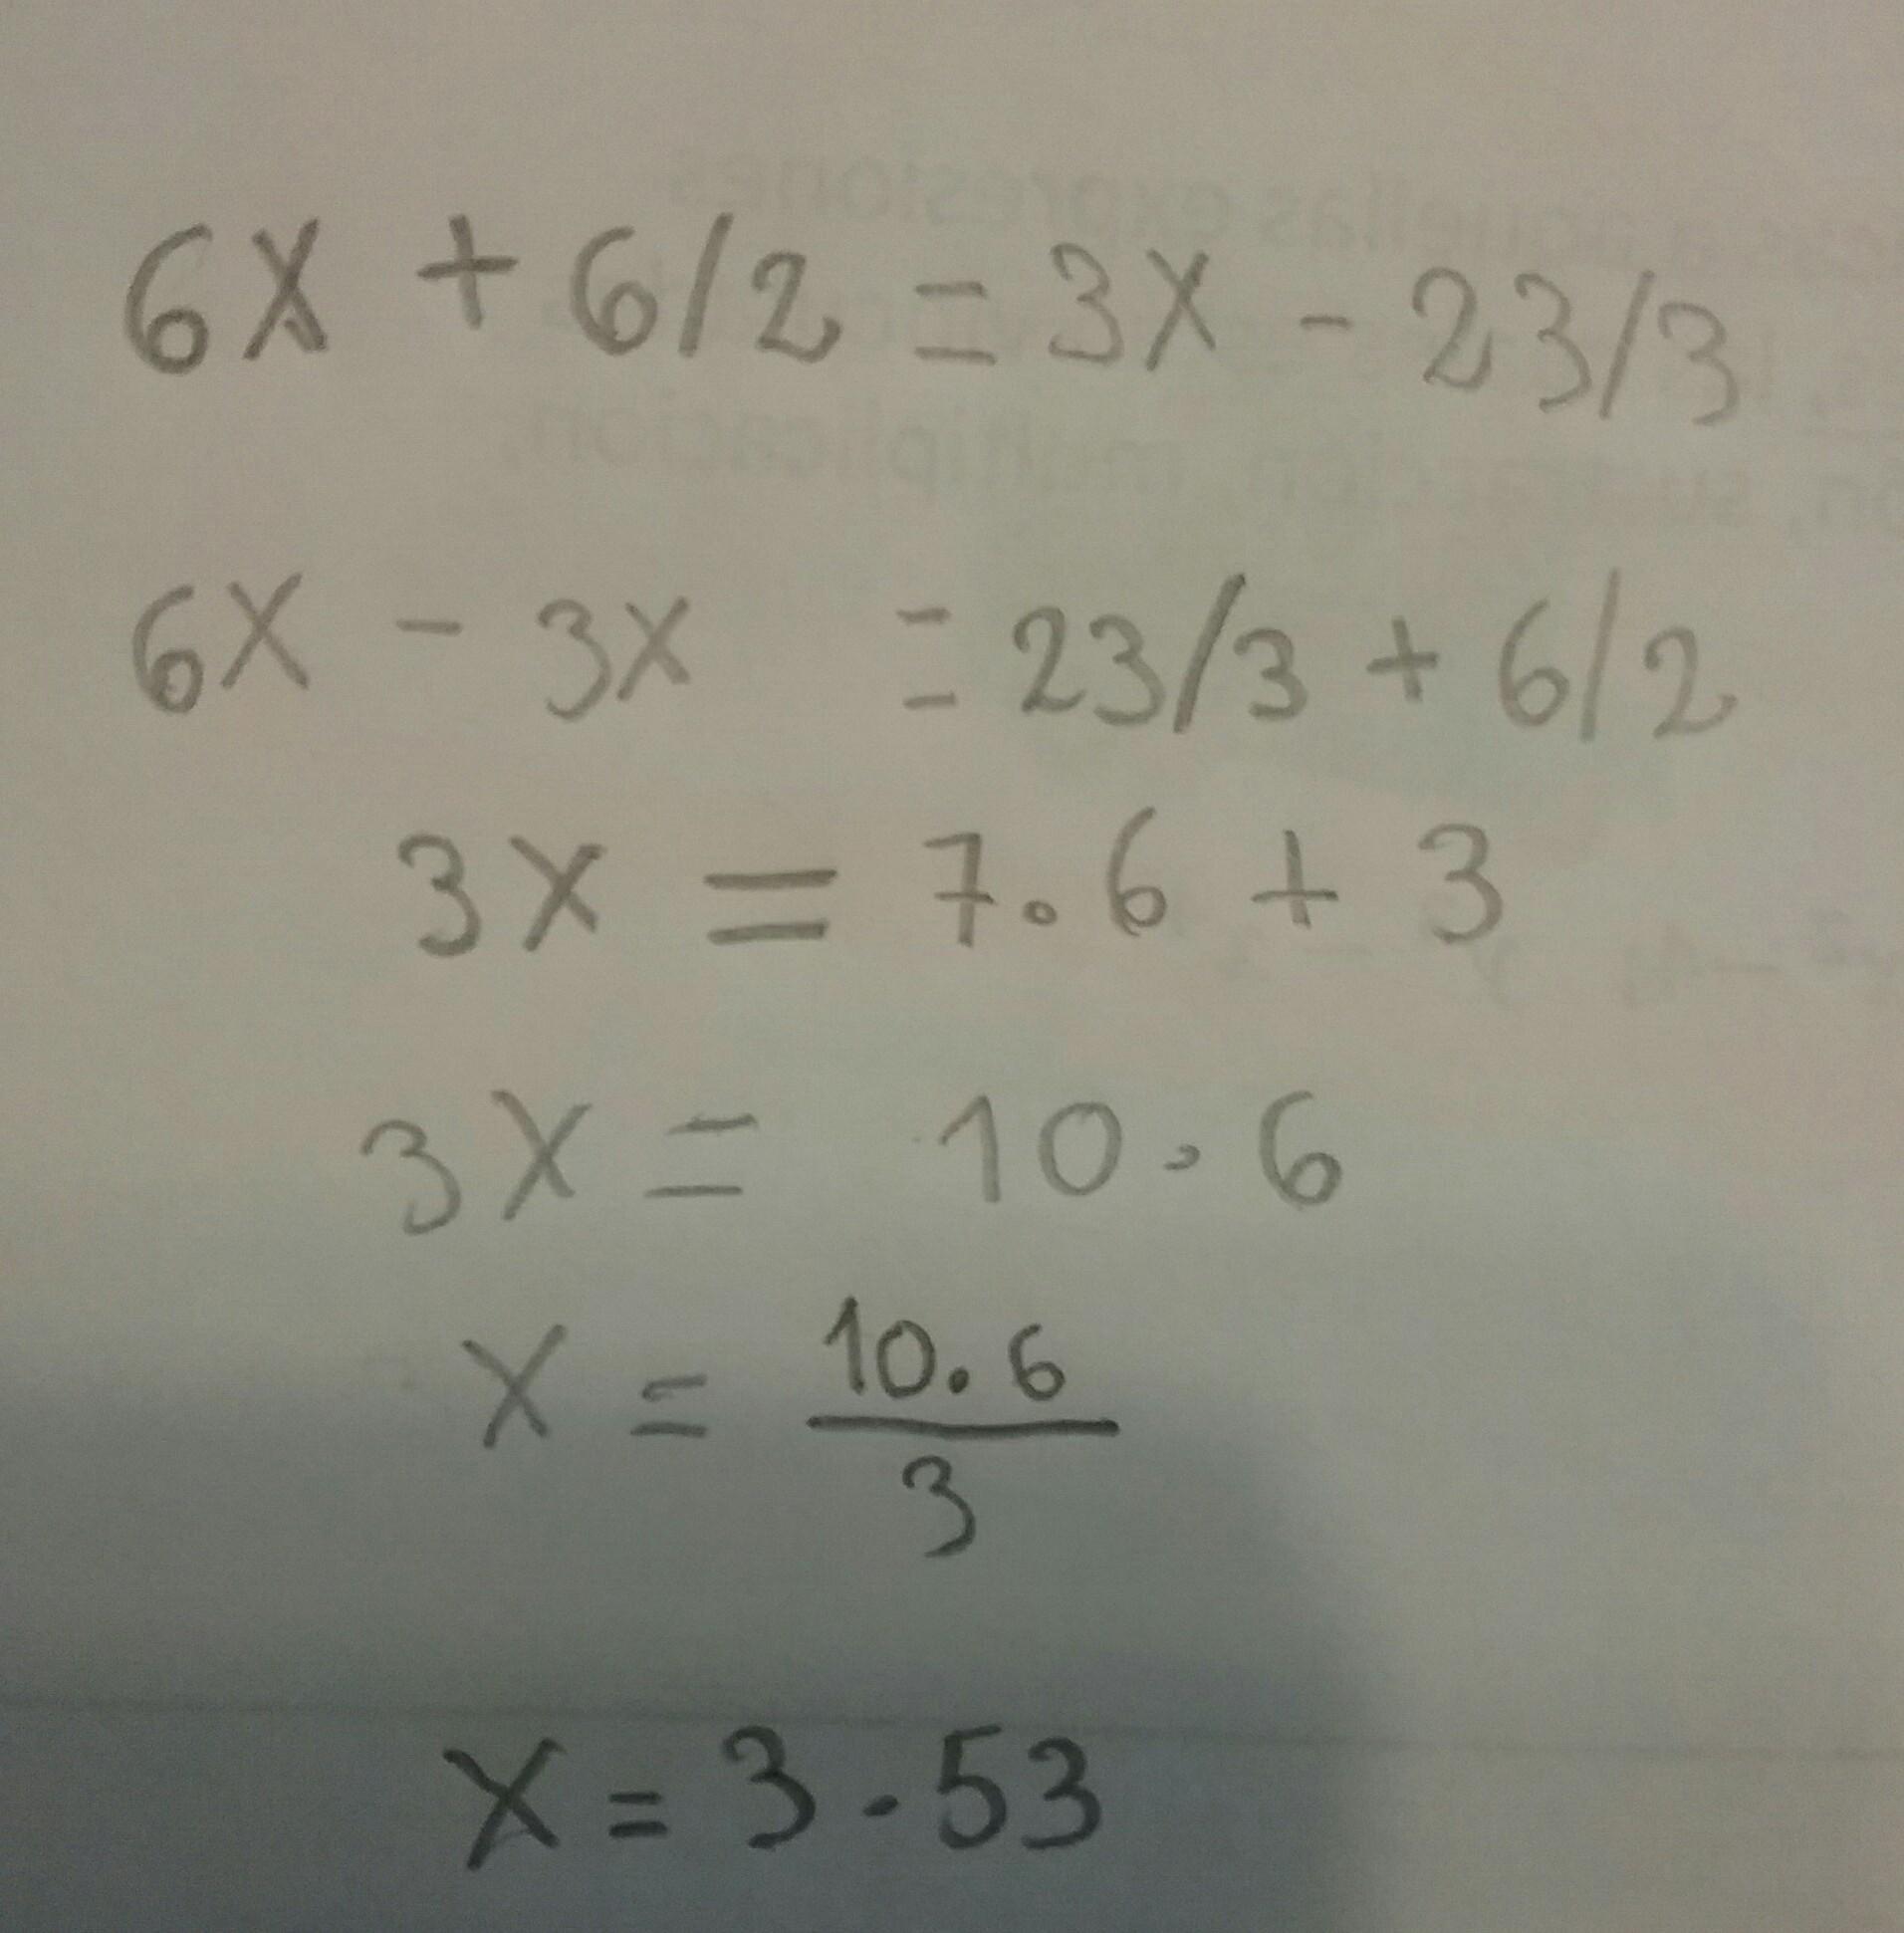 6X + 6/2 = 3X - 23/3
6X - 3X = 23/3 + 6/2
3X = 7.6 + 3
3X = 10.6
X = 10.6
3
X = 3.53